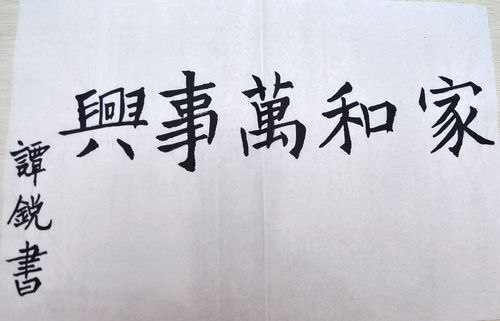 家和萬事興
譚銳書